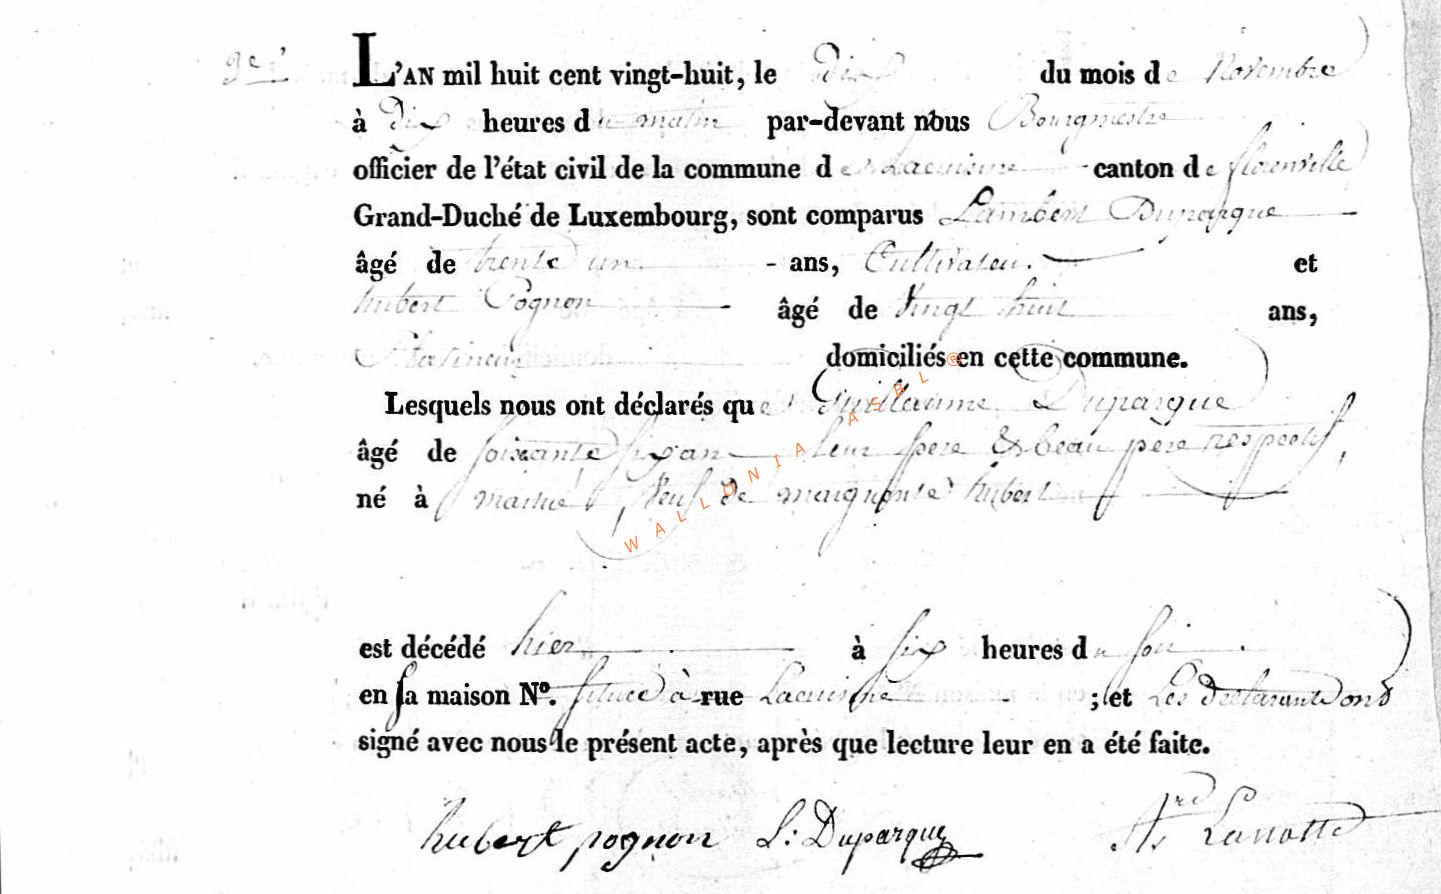 9e
L'AN mil huit cent vingt-huit, le dix du mois de Novembre
à dix heures du matin par-devant nous Bourgmestre
officier de l'état civil de la commune de Lacuisine canton de florenville
Grand-Duché de Luxembourg, sont comparus Lambert Duparque
âgé de trente un ans, Cultivateur et
hubert Pognon âgé de Vingt huit ans,
domiciliés en cette commune.
Lesquels nous ont déclarés que Guillaume Duparque
âgé de soixante six ans leur père & beau père respectif,
né à , veuf de hubert
est décédé hier à six heures du soir
en sa maison Nº. située à rue Lacuisine ; et Les déclarants ont
signé avec nous le présent acte, après que lecture leur en a été faite.
hubert pognon L: Duparque Lanotte
WALLONIA ASBL ®